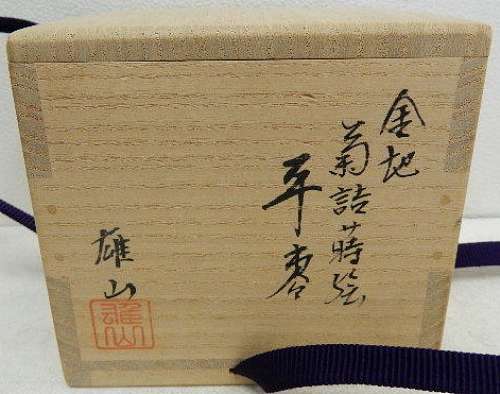 金地
菊詰蒔絵
平棗
雄山
雄山